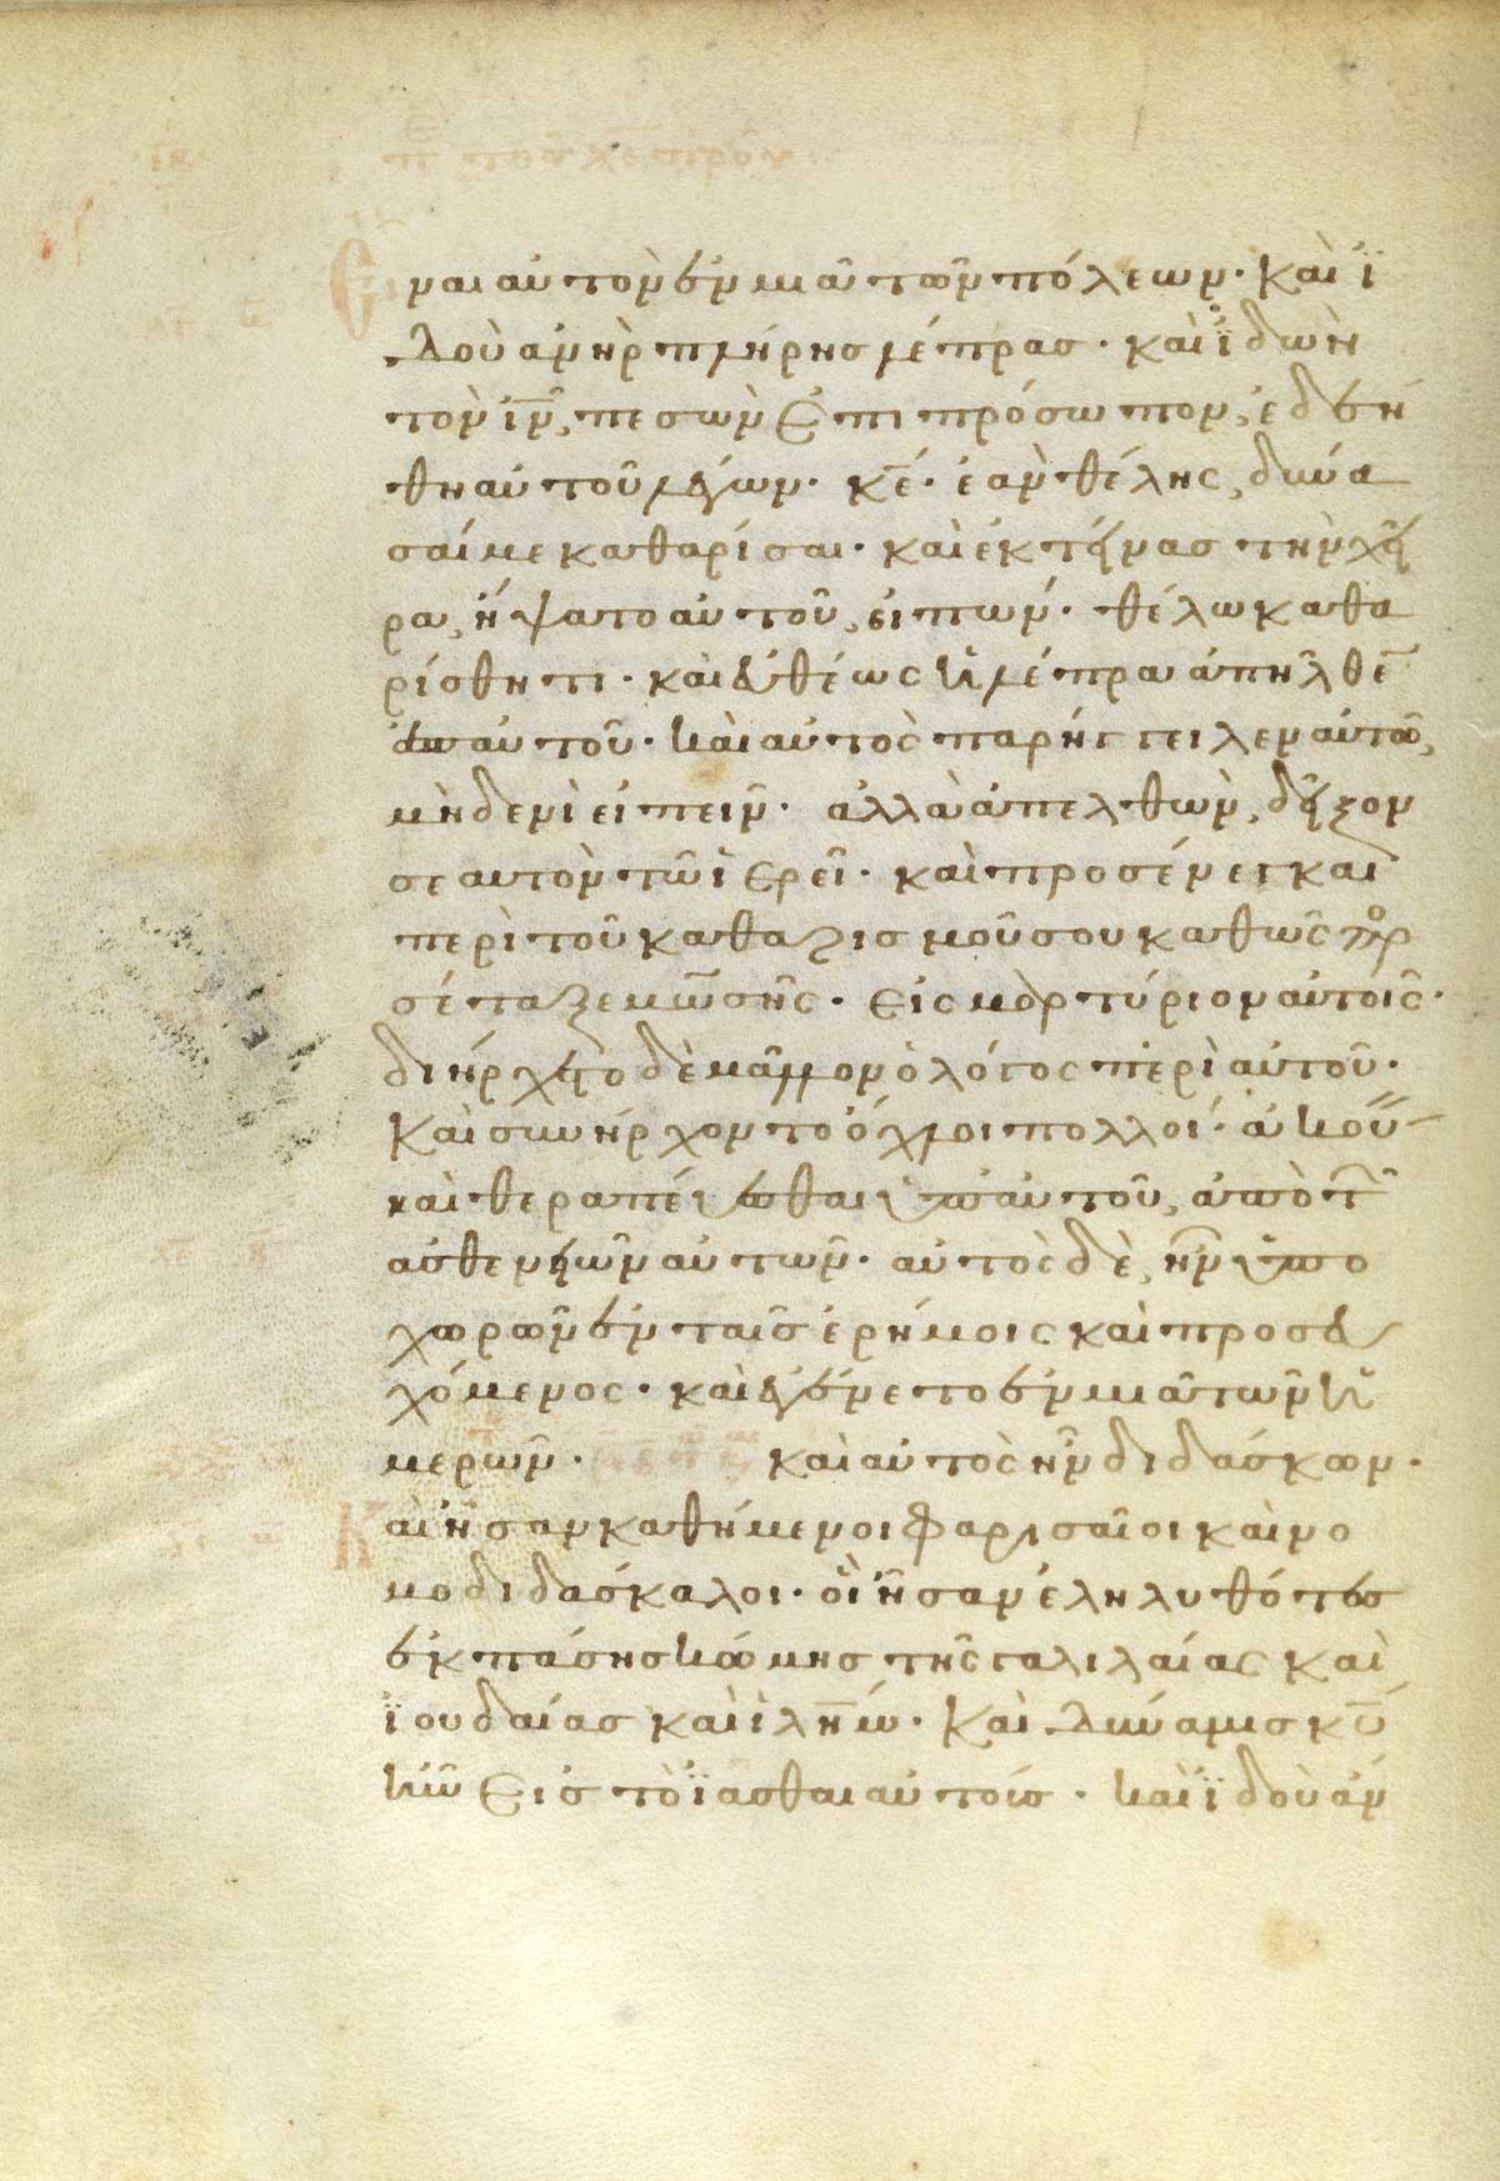 ναι αὐτὸν ἐν μιᾶ τῶν πόλεων· Καὶ ϊ
δοὺ ἀνὴρ πλήρης λέπρας· καὶ ϊδὼν
τὸν ἰν̅, πεσὼν ἐπι πρόσωπον, ἐδεή
θη αὐτοῦ λέγων· κε̅· ἐὰν θέλης, δύνα
σαί με καθαρίσαι· καὶ ἐκτείνας τὴν χεῖ
ρα, ἥψατο αὐτοῦ, εἰπών· θέλω καθα
ρίσθητι· καὶ εὐθέως ἡ λέπρα ἀπῆλθε̅
ἀπ αὐτοῦ· καὶ αὐτὸς παρήγγειλεν αὐτῶ,
μηδενὶ εἰπεῖν· ἀλλὰ ἀπελθὼν, δεῖξον
σεαυτὸν τῶ ἱερεῖ· καὶ προσένεγκαι
περὶ τοῦ καθαρισμοῦ σου καθὼς προ
σέταξε μωσῆς· εἰς μαρτύριον αὐτοῖς·
διήρχετο δὲ μᾶλλον ὁ λόγος περὶ αὐτοῦ·
Καὶ συνήρχοντο ὄχλοι πολλοί· ἀκού
καὶ θεραπεύεσθαι ὑπ αὐτοῦ, ἀπὸ τ̅
ἀσθενειῶν αὐτῶν· αὐτὸς δὲ, ἦν ὑπο
χωρῶν ἐν ταῖς ἐρήμοις καὶ προσευ
χόμενος· καὶ ἐγένετο ἐν μιᾶ τῶν ἡ
μερῶν· καὶ αὐτὸς ἦν διδάσκων·
Καὶ ἦσαν καθήμενοι φαρισαῖοι καὶ νο
μοδιδάσκαλοι· οἳ ἦσαν ἐληλυθότες
ἐκ πάσης κώμης τῆς γαλιλαίας καὶ
ϊουδαίας καὶ ἰλη̅μ· Καὶ δύναμις κυ̅
ἦν εἰς τὸ ϊᾶσθαι αὐτούς· καὶ ϊδοὺ ἄν